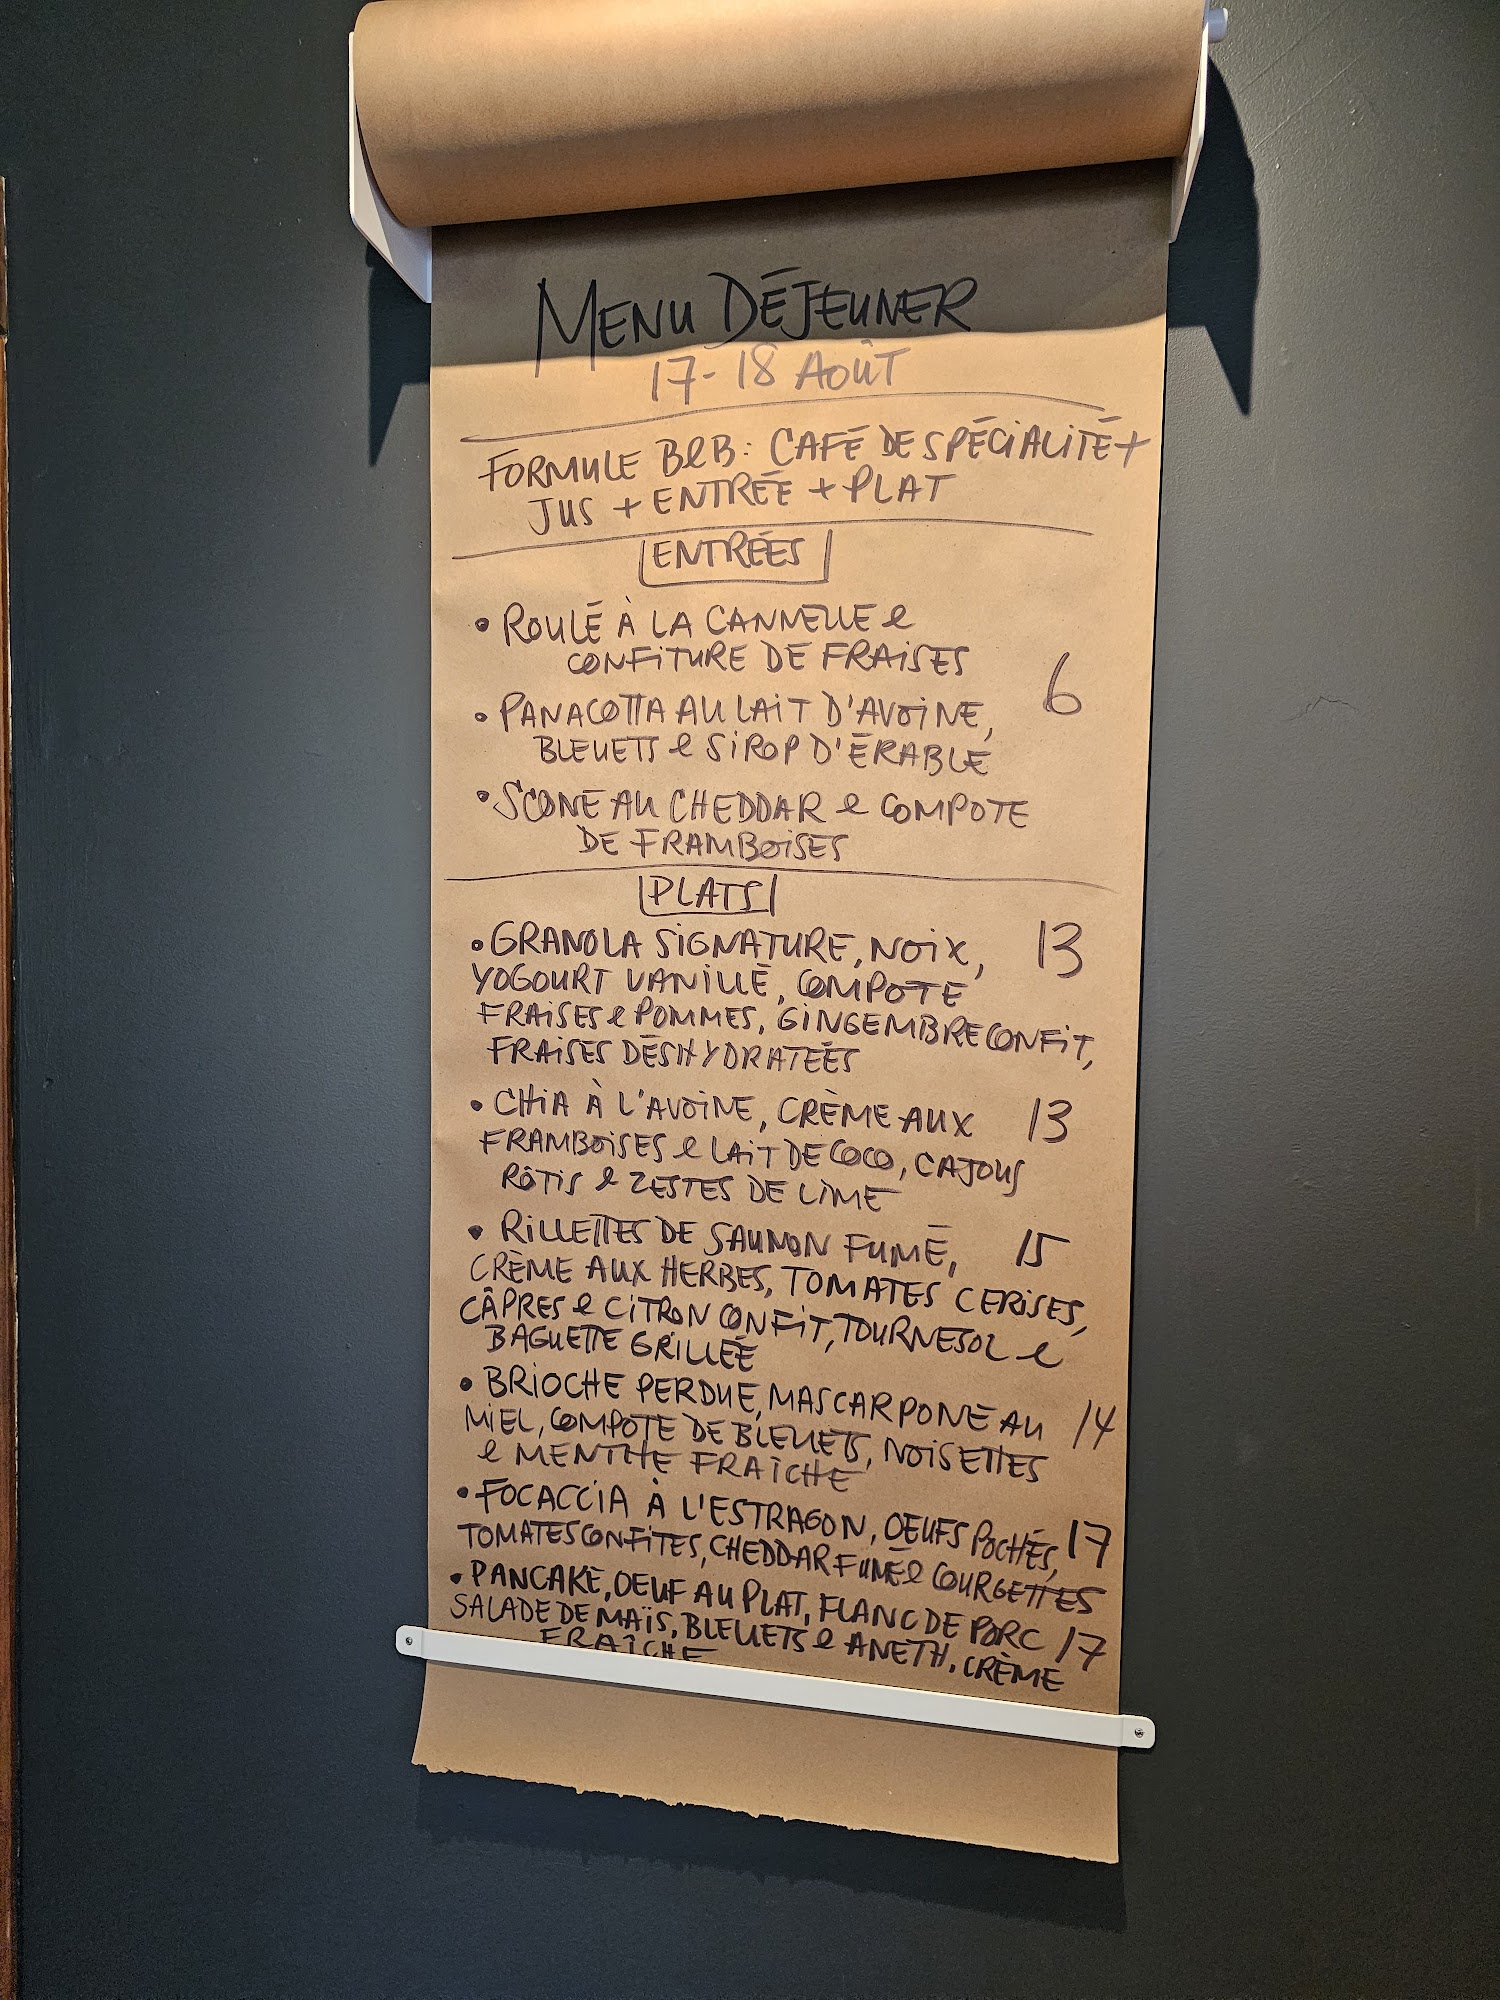 MENU DÉJEUNER
17-18 AOÛT
FORMULE B&B: CAFÉ DE SPÉCIALITÉ +
JUS + ENTRÉE + PLAT
ENTRÉES
• ROULÉ À LA CANNELLE &
CONFITURE DE FRAISES
6
• PANACOTTA AU LAIT D'AVOINE,
BLEUETS & SIROP D'ÉRABLE
• SCONE AU CHEDDAR & COMPOTE
DE FRAMBOISES
PLATS
• GRANOLA SIGNATURE, NOIX, 13
YOGOURT VANILLE, COMPOTE
FRAISES & POMMES, GINGEMBRE CONFIT,
FRAISES DÉSHYDRATÉES
• CHIA À L'AVOINE, CRÈME AUX 13
FRAMBOISES & LAIT DE COCO, CAJOUS
RÔTIS & ZESTES DE LIME
• RILLETTES DE SAUMON FUMÉ, 15
CRÈME AUX HERBES, TOMATES CERISES,
CÂPRES & CITRON CONFIT, TOURNESOL &
BAGUETTE GRILLÉE
• BRIOCHE PERDUE, MASCARPONE AU 14
MIEL, COMPOTE DE BLEUETS, NOISETTES
& MENTHE FRAÎCHE
• FOCACCIA À L'ESTRAGON, OEUFS POCHÉS, 17
TOMATES CONFITES, CHEDDAR FUMÉ & COURGETTES
• PANCAKE, OEUF AU PLAT, FLANC DE PORC 17
SALADE DE MAÏS, BLEUETS & ANETH, CRÈME
FRAÎCHE